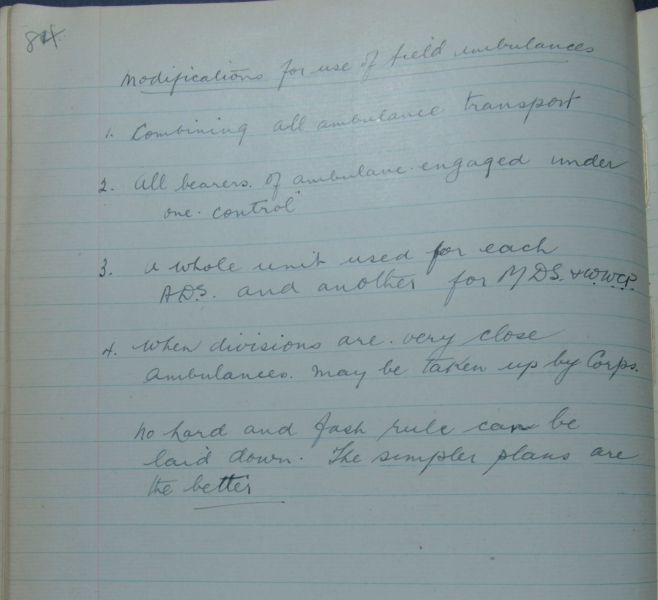 84
Modifications for use of field ambulances
1. Combining all ambulance transport
2. All bearers. of ambulanc. engaged under
one. control"
3. a whole unit used for each
A.D.S. and another for M.D.S. & W.W.C.P.
4. When divisions are. very close
ambulances. may be taken up by Corps.
No hard and fash rule can be
laid down. The simpler plans are
the better